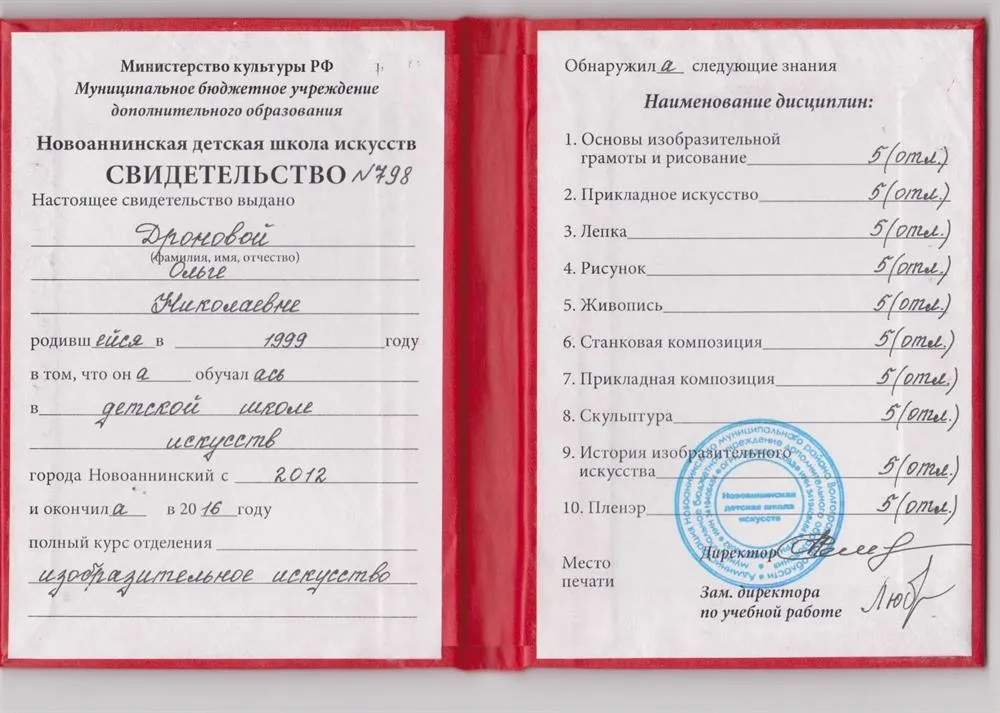 Министерство культуры РФ
Муниципальное бюджетное учреждение
дополнительного образования
Новоаннинская детская школа искусств
СВИДЕТЕЛЬСТВО №798
Настоящее свидетельство выдано
Дроновой
(фамилия, имя, отчество)
Ольге
Николаевне
родившейся в 1999 году
в том, что она обучалась
в детской школе
искусств
города Новоаннинский с 2012
и окончила в 2016 году
полный курс отделения
изобразительное искусство
Обнаружила следующие знания
Наименование дисциплин:
1. Основы изобразительной
грамоты и рисование 5 (отл.)
2. Прикладное искусство 5 (отл.)
3. Лепка 5 (отл.)
4. Рисунок 5 (отл.)
5. Живопись 5 (отл.)
6. Станковая композиция 5 (отл.)
7. Прикладная композиция 5 (отл.)
8. Скульптура 5 (отл.)
9. История изобразительного
искусства 5 (отл.)
10. Пленэр 5 (отл.)
Новоаннинская
детская школа
искусств
Директор
Место
печати
Зам. директора
по учебной работе